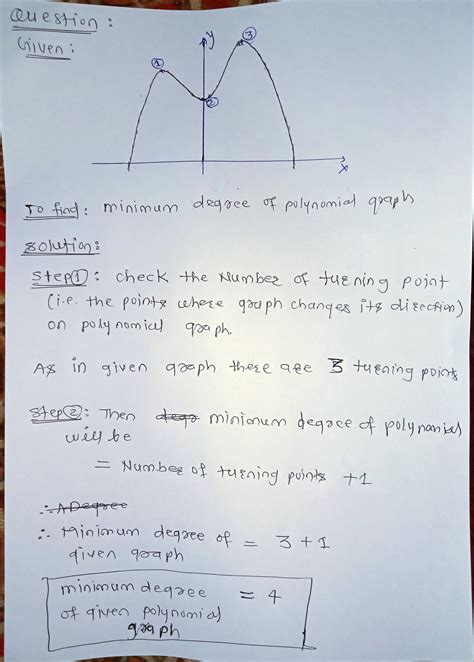 Question :
Given :
y
①
③
②
x
To find : minimum degree of polynomial graph
Solution :
Step① : check the Number of turning point
(i.e. the points where graph changes its direction)
on polynomial graph.
As in given graph there are 3 turning points
Step② : Then degr minimum degree of polynomial
will be
= Number of turning points +1
∴ A Degree
∴ Minimum degree of = 3 + 1
given graph
minimum degree = 4
of given polynomial
graph